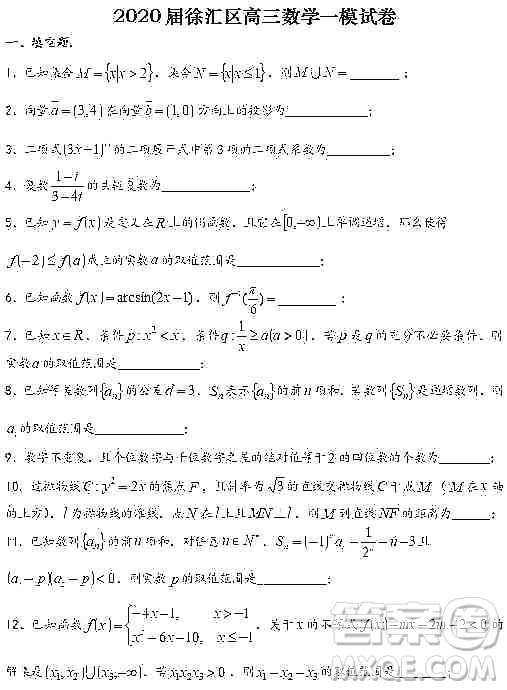 2020届徐汇区高三数学一模试卷
一. 填空题.
1、已知集合 M={x|x>2}，集合 N={x|x≤1}，则 M∪N=________；
2、向量 a=(3,4) 在向量 b=(1,0) 方向上的投影为____________；
3、二项式(3x+1)^的二项展开式中第3项的二项式系数为__________；
4、复数 (1-i)/(3-4i) 的共轭复数为____________；
5、已知 y=f(x) 是定义在 R 上的偶函数，且它在[0,+∞)上单调递增，那么使得
f(-2)≤f(a) 成立的实数 a 的取值范围是____________；
6、已知函数 f(x)=arcsin(2x-1)，则 f⁻¹(π/6)=________；
7、已知 x∈R，条件 p:x²<x，条件 q:1/x≥a(a>0)，若 p 是 q 的充分不必要条件，则
实数 a 的取值范围是____________；
8、已知等差数列{aₙ}的公差 d=3，Sₙ表示{aₙ}的前 n 项和，若数列{Sₙ}是递增数列，则
a₁的取值范围是____________；
9、数字不重复，且个位数字与千位数字之差的绝对值等于2的四位数的个数为________；
10、过抛物线 C:y²=2x 的焦点 F，且斜率为 √3 的直线交抛物线 C 于点 M（M 在 x 轴
的上方），l 为抛物线的准线，点 N 在 l 上且 MN⊥l，则 M 到直线 NF 的距离为______；
11、已知数列{aₙ}的前 n 项和，对任意 n∈N*，Sₙ=(-1)ⁿaₙ+1/2ⁿ+n-3且
(-p)(-p)<0，则实数 p 的取值范围是____________；
12、已知函数 f(x)={-4x+1, x>-1
x²+6x+10, x≤-1，关于 x 的不等式 f(x)-mx-2m-2<0 的
解集是(x₁,x₂)∪(x₃,+∞)，若 x₁x₂x₃>0，则 x₁+x₂+x₃ 的取值范围是____________；